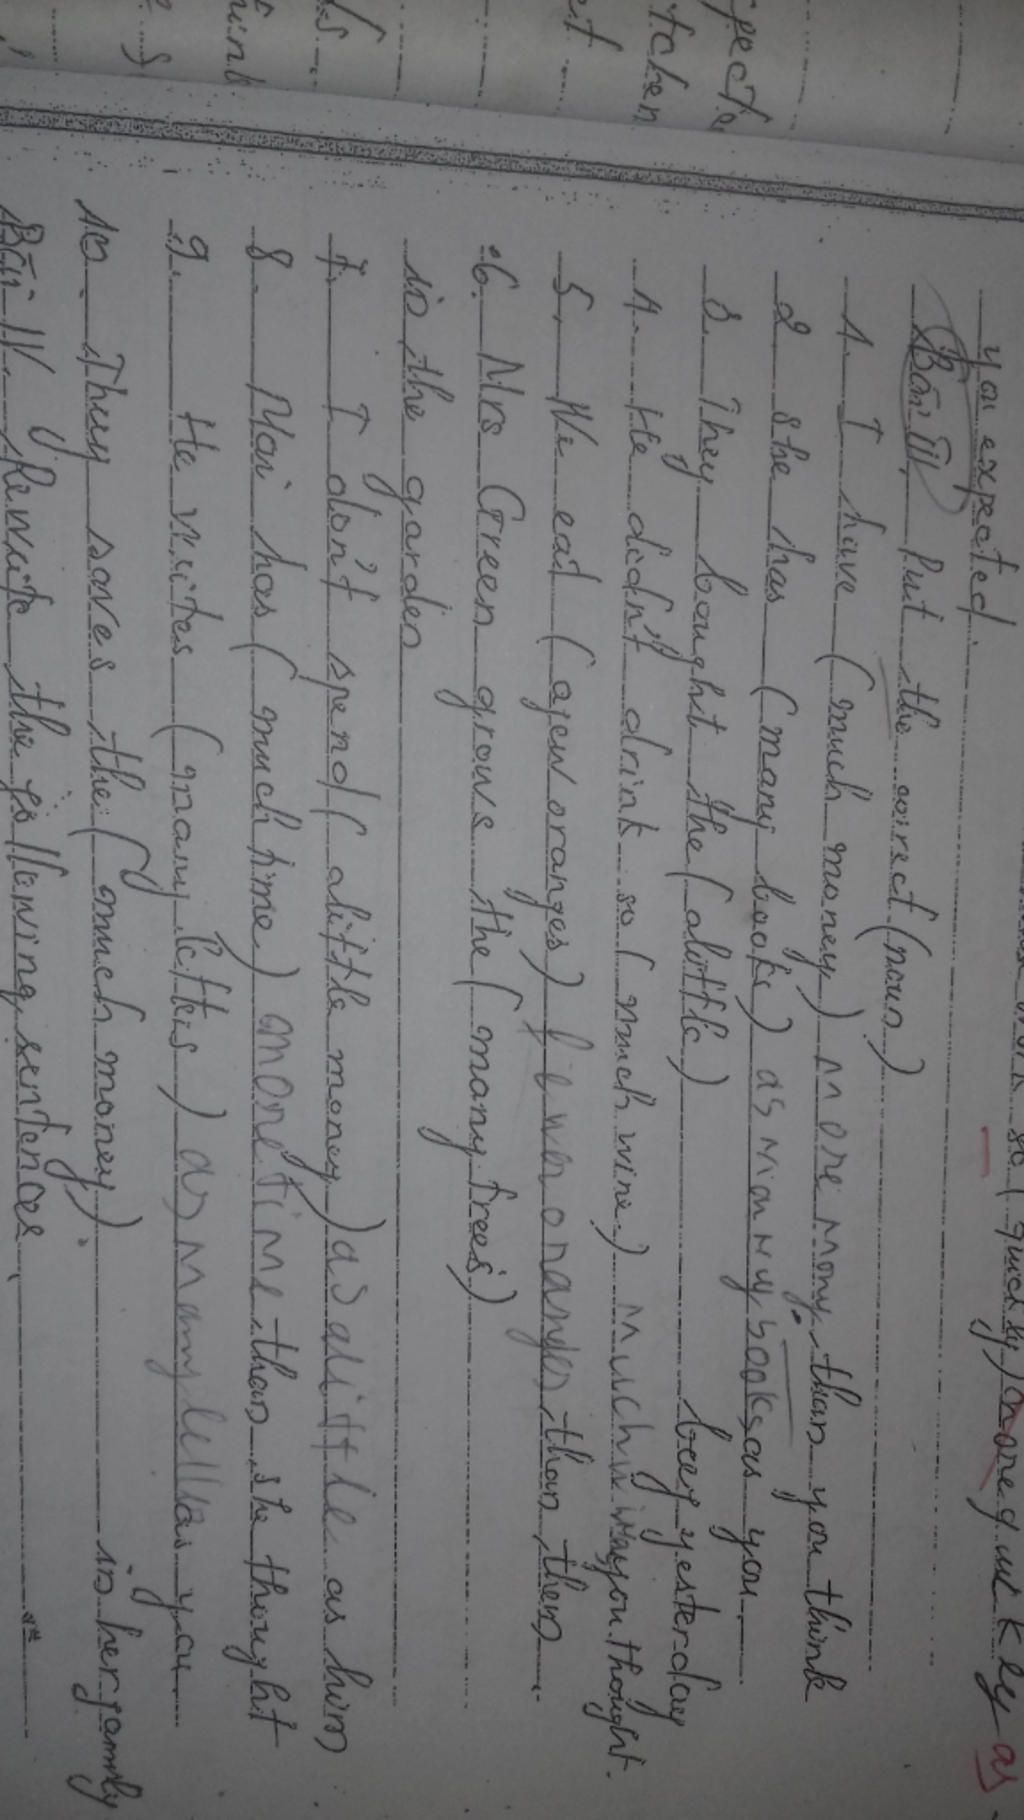 you expected
Bài III, Put the correct (noun)
1. I have (much money) more mony than you think
2 she has (many books) as mianny books as you
3. They bought the (alittle) beef yesterday
4. He didn't drink so (much wine) much you thought.
5, We eat (afew oranges) than them
6. Mrs Green grows the (many trees)
in the garden
7. I don't spend (alittle money) as alittle as him
8. Mai has (much time) more time than she thought
9. He writes (many letters) as many as you
10. Thuy saves the (much money) in her family
Bài IV, Rewrite the following sentences
so (quickly) more quickly as